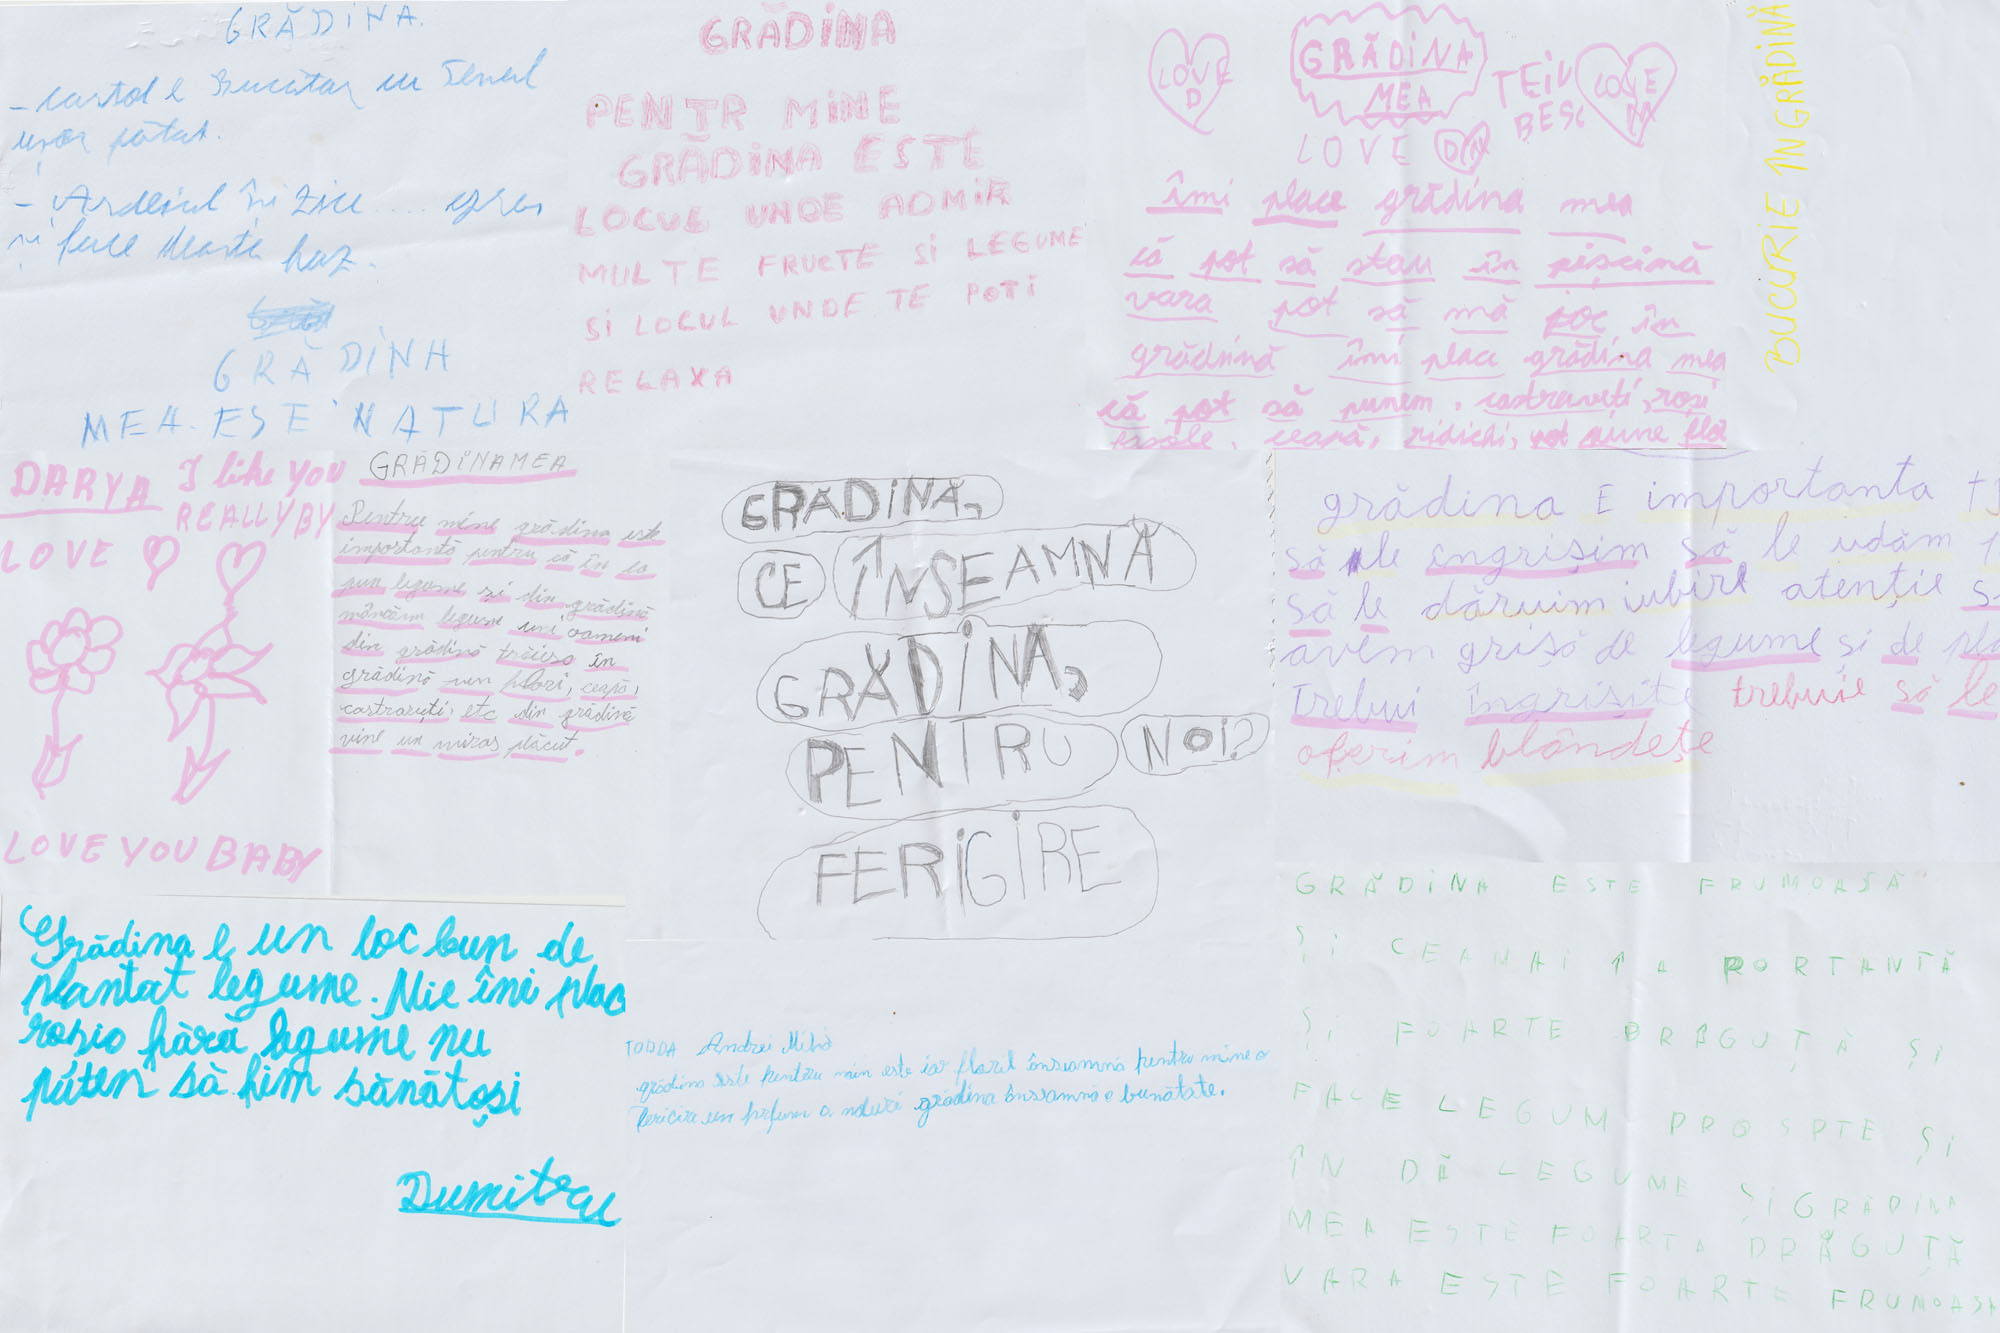 GRĂDINA.
- cartof e bucătar cu țenul
ușor pătat.
- Ardeiul își zice .... 
și face haz.
GRĂDINA
MEA ESE NATURA
GRĂDINA
PENTR MINE
GRĂDINA ESTE
LOCUL UNDE ADMIR
MULTE FRUCTE SI LEGUME
SI LOCUL UNDE TE POTI
RELAXA
LOVE
D
GRĂDINA
MEA
TEIU
BESC
LOVE
LOVE DN
îmi place grădina mea
că pot să stau în piscină
vara pot să mă joc în
grădină îmi place grădina mea
că pot să punem. castraveți, roși
ceapă, ridichi, pune
BUCURIE ÎN GRĂDINĂ
DARYA I like YOU
REALLY BY
LOVE
LOVE YOU BABY
GRĂDINA MEA
Pentru mine grădina este
importantă pentru că în ea
pun legume și din grădină
mâncăm legume uni oameni
din grădină trăiesc în
grădină pun flori, ceapă,
castraveți, etc din grădină
vine un miros plăcut.
GRĂDINĂ,
CE ÎNSEAMNĂ
GRĂDINA,
PENTRU NOI?
FERIGIRE
grădina E importanta
să le îngrișim să le udăm
să le dăruim iubire atenție
avem grișă de legume și de
trebui îngrișite trebuie să le
oferim blândețe
Grădina e un loc bun de
plantat legume. Mie îmi plac
rosio fără legume nu
putem să fim sănătoși
Dumitru
TODDA Andrei
grădin este pentru min este iar floril însamnă pentru mine o
fericire un pafum o grădina însamnă o bunătate.
GRĂDINA ESTE FRUMOASĂ
ȘI CEAMAI PORTANTĂ
ȘI FOARTE DRĂGUȚĂ ȘI
FACE LEGUM PROSPTE ȘI
ÎN DĂ LEGUME ȘI GRADINA
MEA ESTE FOARTA DRĂGUȚĂ
VARA ESTE FOARTE FRUMOASA